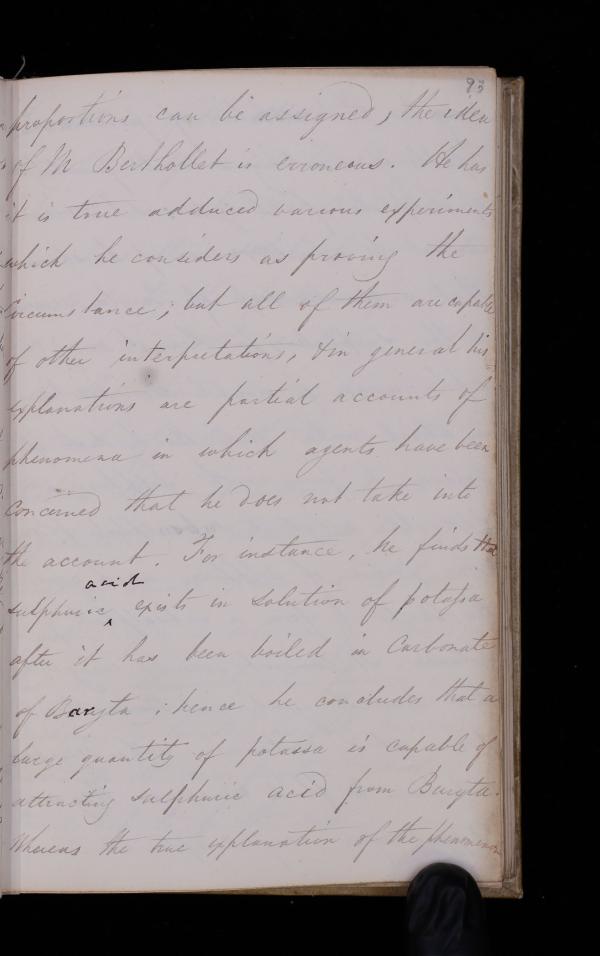 93
proportions can be assigned, the idea
of M Berthollet is erroneous. He has
it is true adduced various experiments
which he considers as proving the
Circumstance; but all of them are capable
of other interpretations, & in general his
explanations are partial accounts of
phenomena in which agents have been
concerned that he does not take into
the account. For instance, he finds that
acid
sulphuric ^ exists in solution of potassa
after it has been boiled in Carbonate
of Baryta; hence he concludes that a
large quantity of potassa is capable of
attracting sulphuric acid from Baryta.
Whereas the true explanation of the phenomenon